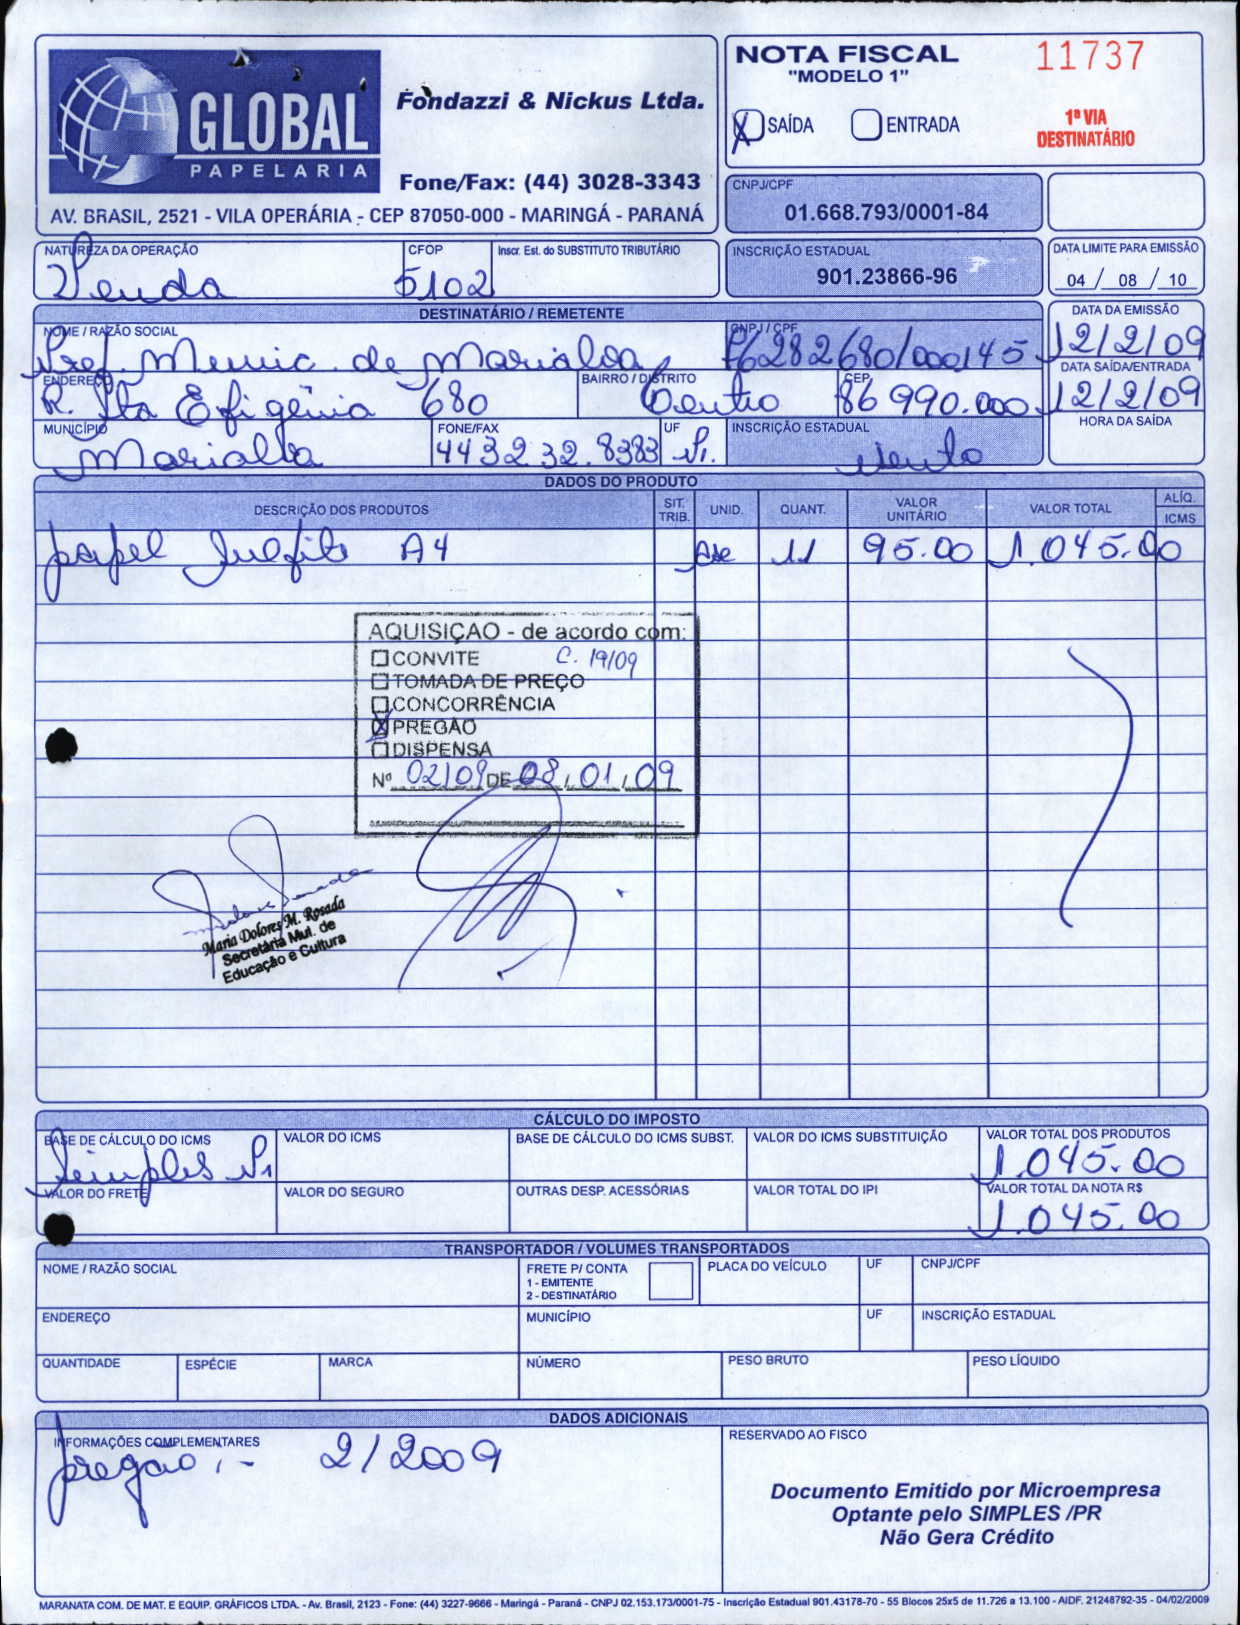 GLOBAL
PAPELARIA
Fondazzi & Nickus Ltda.
Fone/Fax: (44) 3028-3343
AV. BRASIL, 2521 - VILA OPERÁRIA - CEP 87050-000 - MARINGÁ - PARANÁ
NOTA FISCAL
"MODELO 1"
11737
X SAÍDA ENTRADA
1ª VIA
DESTINATÁRIO
CNPJ/CPF
01.668.793/0001-84
NATUREZA DA OPERAÇÃO CFOP Inscr. Est. do SUBSTITUTO TRIBUTÁRIO
Venda 5102
INSCRIÇÃO ESTADUAL
901.23866-96
DATA LIMITE PARA EMISSÃO
04 / 08 / 10
DESTINATÁRIO / REMETENTE
NOME / RAZÃO SOCIAL CNPJ / CPF DATA DA EMISSÃO
Pref. Munic. de Marialva 76282680/000145 12/2/09
ENDEREÇO BAIRRO / DISTRITO CEP DATA SAÍDA/ENTRADA
R. Sta Efigênia 680 Centro 86990.000 12/2/09
MUNICÍPIO FONE/FAX UF INSCRIÇÃO ESTADUAL HORA DA SAÍDA
Marialva 44 32 32.8383 Pr. isento
DADOS DO PRODUTO
DESCRIÇÃO DOS PRODUTOS SIT. TRIB. UNID. QUANT. VALOR UNITÁRIO VALOR TOTAL ALÍQ. ICMS
papel Sulfite A4 11 95.00 1.045.00
AQUISIÇÃO - de acordo com:
CONVITE C. 19/09
TOMADA DE PREÇO
CONCORRÊNCIA
X PREGÃO
DISPENSA
Nº 02/09 DE 08 / 01 / 09
Maria Dolores M. Rosada
Secretária Mul. de
Educação e Cultura
CÁLCULO DO IMPOSTO
BASE DE CÁLCULO DO ICMS VALOR DO ICMS BASE DE CÁLCULO DO ICMS SUBST. VALOR DO ICMS SUBSTITUIÇÃO VALOR TOTAL DOS PRODUTOS
Simples Pr 1.045.00
VALOR DO FRETE VALOR DO SEGURO OUTRAS DESP. ACESSÓRIAS VALOR TOTAL DO IPI VALOR TOTAL DA NOTA R$
1.045.00
TRANSPORTADOR / VOLUMES TRANSPORTADOS
NOME / RAZÃO SOCIAL FRETE P/ CONTA PLACA DO VEÍCULO UF CNPJ/CPF
1 - EMITENTE
2 - DESTINATÁRIO
ENDEREÇO MUNICÍPIO UF INSCRIÇÃO ESTADUAL
QUANTIDADE ESPÉCIE MARCA NÚMERO PESO BRUTO PESO LÍQUIDO
DADOS ADICIONAIS
INFORMAÇÕES COMPLEMENTARES RESERVADO AO FISCO
pregão :- 2/2009
Documento Emitido por Microempresa
Optante pelo SIMPLES /PR
Não Gera Crédito
MARANATA COM. DE MAT. E EQUIP. GRÁFICOS LTDA. - Av. Brasil, 2123 - Fone: (44) 3227-9666 - Maringá - Paraná - CNPJ 02.153.173/0001-75 - Inscrição Estadual 901.43178-70 - 55 Blocos 25x5 de 11.726 a 13.100 - AIDF. 21248792-35 - 04/02/2009